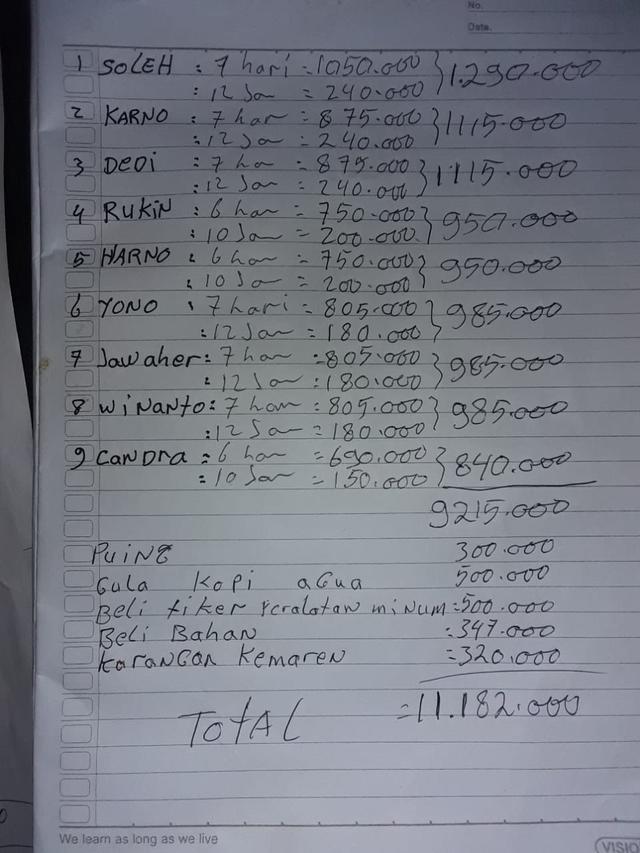 No.
Date.
1 SOLEH : 7 hari = 1050.000 } 1.290.000
: 12 Jam = 240.000
2 KARNO : 7 har = 875.000 } 1115.000
: 12 Jam = 240.000
3 DEDI : 7 har = 875.000 } 1115.000
: 12 Jam = 240.000
4 RUKIN : 6 har = 750.000 } 950.000
: 10 Jam = 200.000
5 HARNO : 6 har = 750.000 } 950.000
: 10 Jam = 200.000
6 YONO : 7 hari = 805.000 } 985.000
: 12 Jam = 180.000
7 Jawaher : 7 har = 805.000 } 985.000
: 12 Jam = 180.000
8 WiNANto : 7 har = 805.000 } 985.000
: 12 Jam = 180.000
9 CANDRA = 6 har = 690.000 } 840.000
= 10 Jam = 150.000
9215.000
PUiNG 300.000
Gula Kopi aGua 500.000
Beli tiker Peralatan minum = 500.000
Beli Bahan = 347.000
KaraNGan Kemaren = 320.000
TOtAL = 11.182.000
We learn as long as we live
VISIO